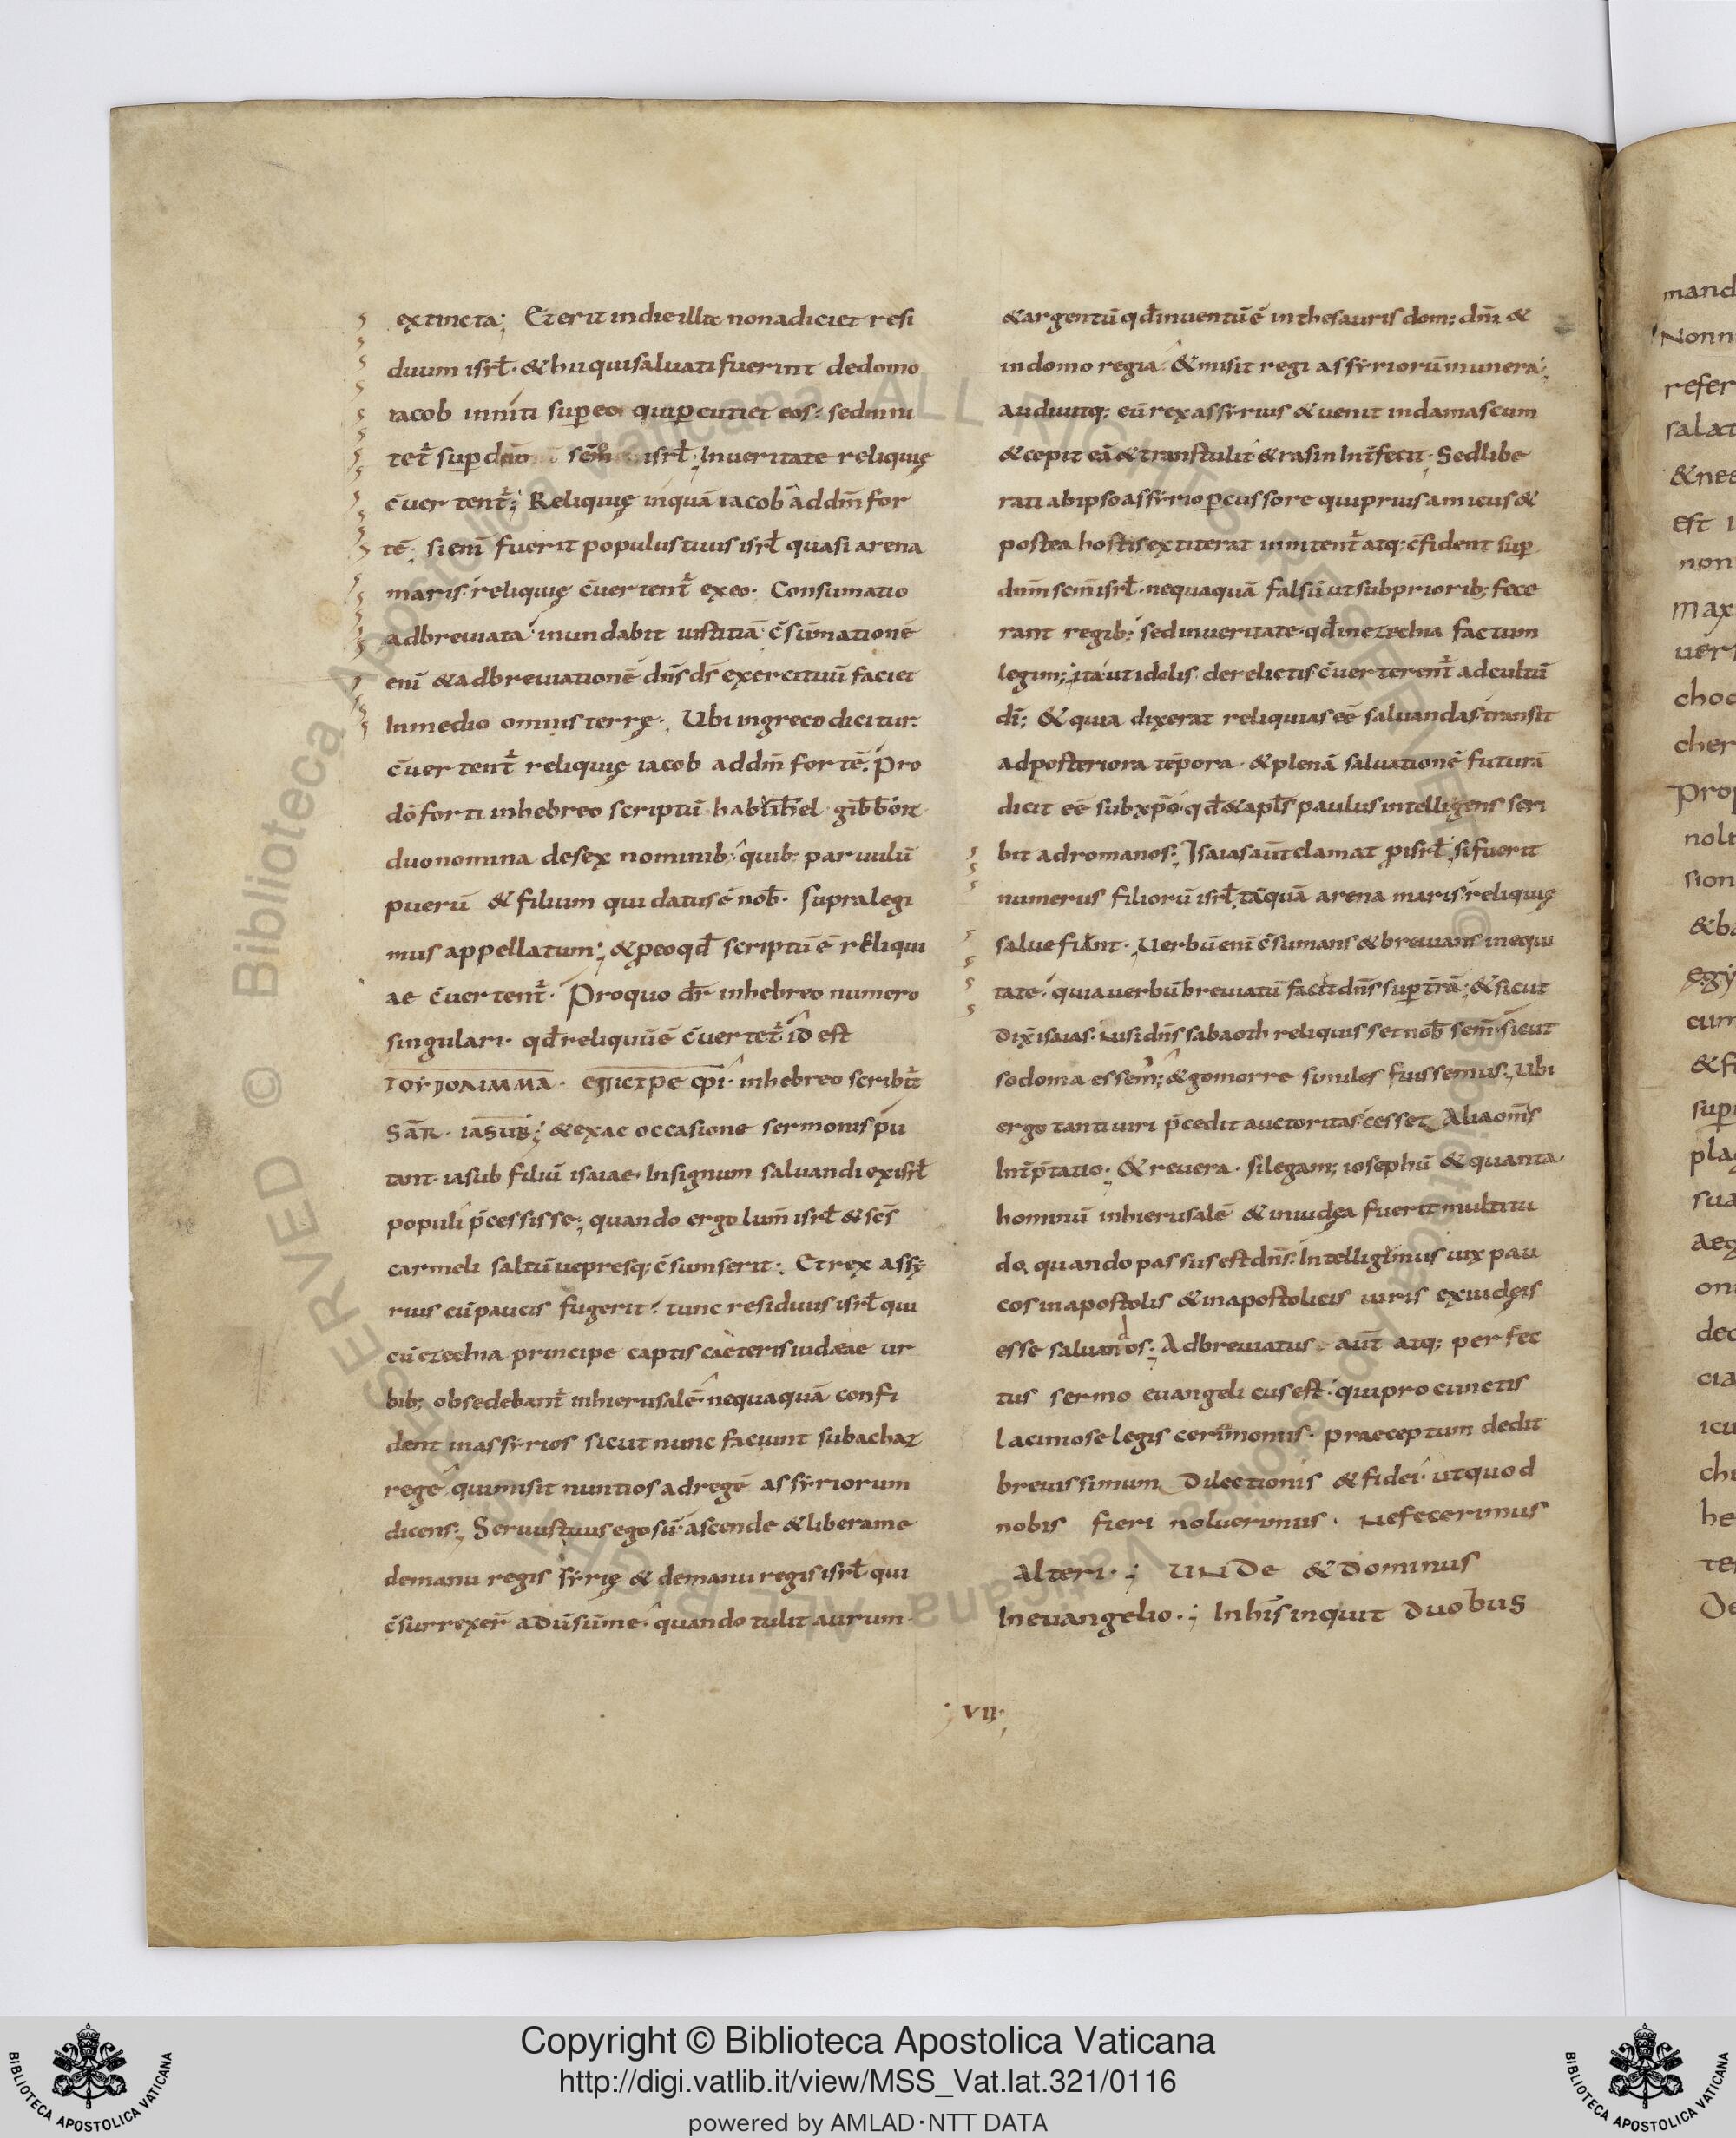 extincta; Et erit in die illa non adiciet resi
duum isrł· & hii qui saluati fuerint de domo
iacob inniti sup eo qui pcutiet eos· sed inni
tet sup dnm scm isrł; In ueritate reliquię
c̄uertent̄; Reliquię inquā iacob ad dm̄ for
tē· si enī fuerit populus tuus isrł quasi arena
maris· reliquię c̄uertent̄ ex eo· Consumatio
adbreuiata inundabit iustitiā· c̄sūmationē
enī & adbreuiationē dn̄s ds̄ exercituū faciet
In medio omnis terrę; Ubi in greco dicitur
c̄uertent̄ reliquię iacob ad dm̄ fortē; Pro
dō forti in hebreo scriptū hab& hel gibbor·
duo nomina de sex nominib; quib; paruulū
puerū & filium qui datus ē nob̄· supra legi
mus appellatum; & p eo qd̄ scriptū ē reliqui
ae c̄uertent̄· Pro quo dr̄ in hebreo numero
singulari· qd̄ reliquū ē c̄uertet̄· id est
inhebreo scribit̄
sār· iasub; & ex ac occasione sermonis pu
tant· iasub filiū isaiae· In signum saluandi ex isrł
populi p̄cessisse; quando ergo lum̄ isrł & scs̄
carmeli saltū uepresq; c̄sumserit; Et rex assy
rius cū paucis fugerit· tunc residuus isrł qui
cū ezechia principe captis caeteris iudaeae ur
bib; obsedebant̄ in hierusalē· nequaquā confi
dent in assyrios sicut nunc faciunt sub achaz
regē qui misit nuntios ad regē assyriorum
dicens; Seruus tuus ego sū· ascende & libera me
de manu regis syrię & de manu regis isrł qui
c̄surrexer̄ aduersum me· quando tulit aurum·
& argentū qd̄ inuentū ē in thesauris dom; dn̄i &
in domo regia· & misit regi assyriorū munera;
audiuitq; eū rex assyrius & uenit in damascum
& cepit eā & transtulit & rasin Int̄fecit· Sed libe
rati ab ipso assyrio pcussore qui prius amicus &
postea hostis extiterat innitent̄ atq; c̄fident sup
dnm̄ scm̄ isrł· nequaquā falsū ut sub priorib; fece
rant regib; sed in ueritate· qd̄ in ezechia factum
legim; ita ut idolis derelictis c̄uerterent̄ ad cultū
dī; & quia dixerat reliquias eē saluandas· transit
ad posteriora tēpora· & plenā saluationē futurā
dicit eē sub xp̄o· qd̄ & apls̄ paulus intelligens scri
bit ad romanos; Isaias aut̄ clamat p isrł; si fuerit
numerus filiorū isrł tāquā arena maris· reliquię
salue fiant·; Uerbū enī c̄sumans & breuians in equi
tate· quia uerbū breuiatū faciet dn̄s sup t̄rā; & sicut
dix̄ isaias· nisi dn̄s sabaoth reliquisset nob̄ sem̄· sicut
sodoma essem; & gomorre similes fuissemus·; Ubi
ergo tanti uiri p̄cedit auctoritas· cesset Alia omīs
Int̄p̄tatio·; & reuera· si legam; iosephū & quanta·
hominū in hierusalē & in iudęa fuerit multitu
do, quando passus est dn̄s· Intelligimus uix pau
cos in apostolis & in apostolicis uiris ex iudęis
esse saluandos·; Adbreuiatus aut̄ atq; perfec
tus sermo euangelicus est· qui pro cunctis
laciniose legis cerimoniis· praeceptum dedit
breuissimum Dilectionis & fidei· ut quod
nobis fieri noluerimus· Ne fecerimus
Alteri·; UNDe & dominus
In euangelio·; In his̄ inquit duobus
·VII·
mand
Nonn
refer
salat
& nec
est i
non
max
uers
choc
cher
Prop
nolt
sion
& ba
egy
cum
& fi
sup
plag
sua
aeg
oni
dec
cia
icu
chi
he
ter
De
Copyright © Biblioteca Apostolica Vaticana
http://digi.vatlib.it/view/MSS_Vat.lat.321/0116
powered by AMLAD·NTT DATA
BIBLIOTECA APOSTOLICA VATICANA
BIBLIOTECA APOSTOLICA VATICANA